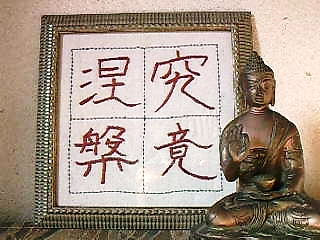 究竟
涅槃